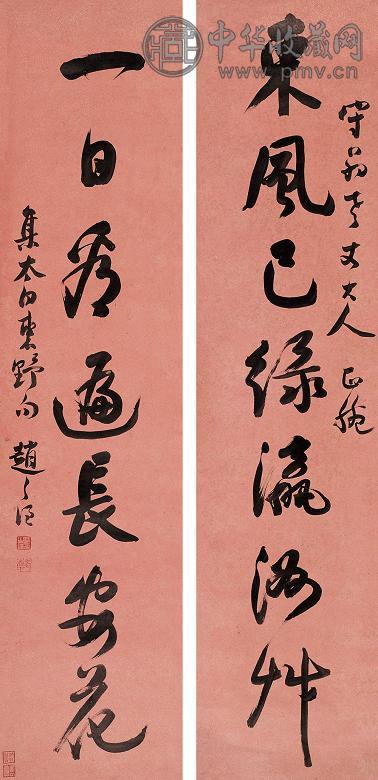 中华收藏网
www.pmv.cn
老丈大人正腕
東風已綠瀛洲艸
一日看遍長安花
集太白東野句 趙之謙